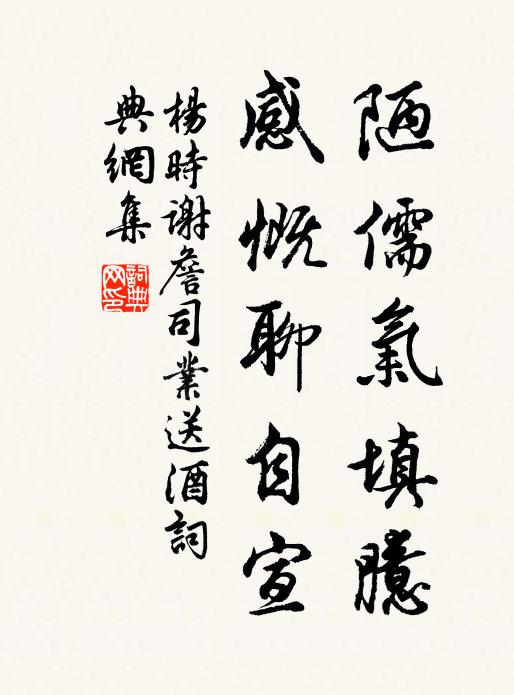 陋儒氣填臆
感慨聊自宣
楊時謝詹司業送酒詞
典網集
詞典网印